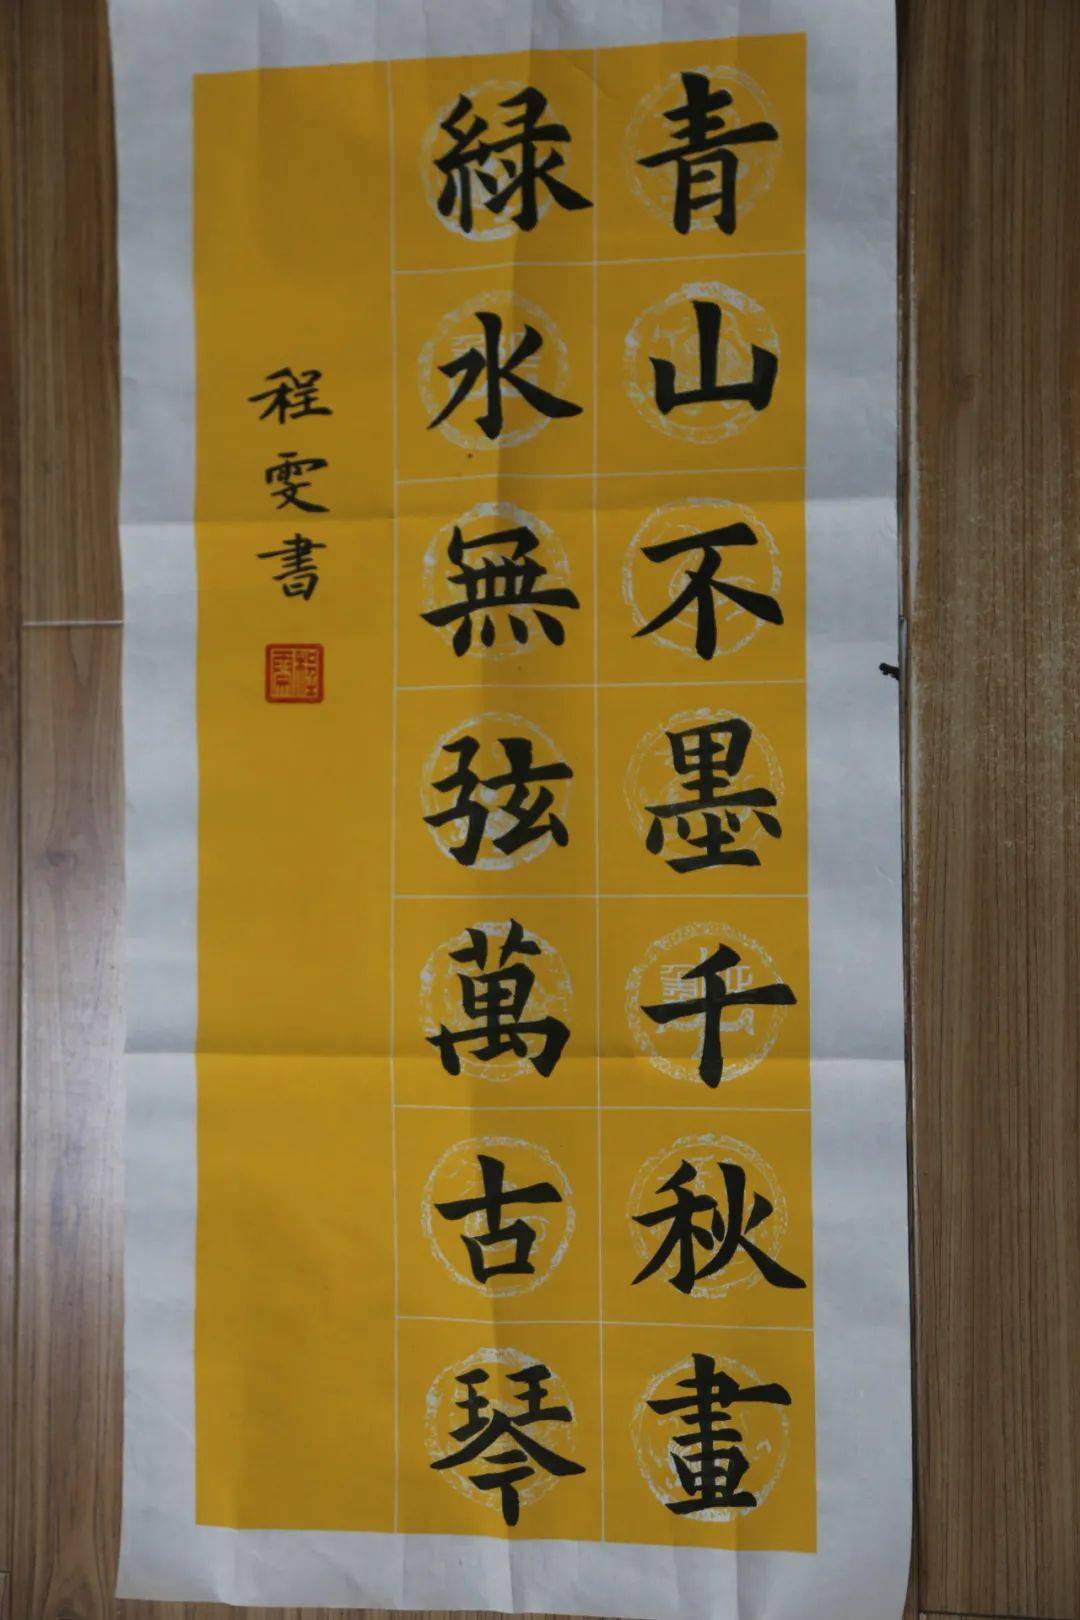 青山不墨千秋畫
緑水無弦萬古琴
程雯書